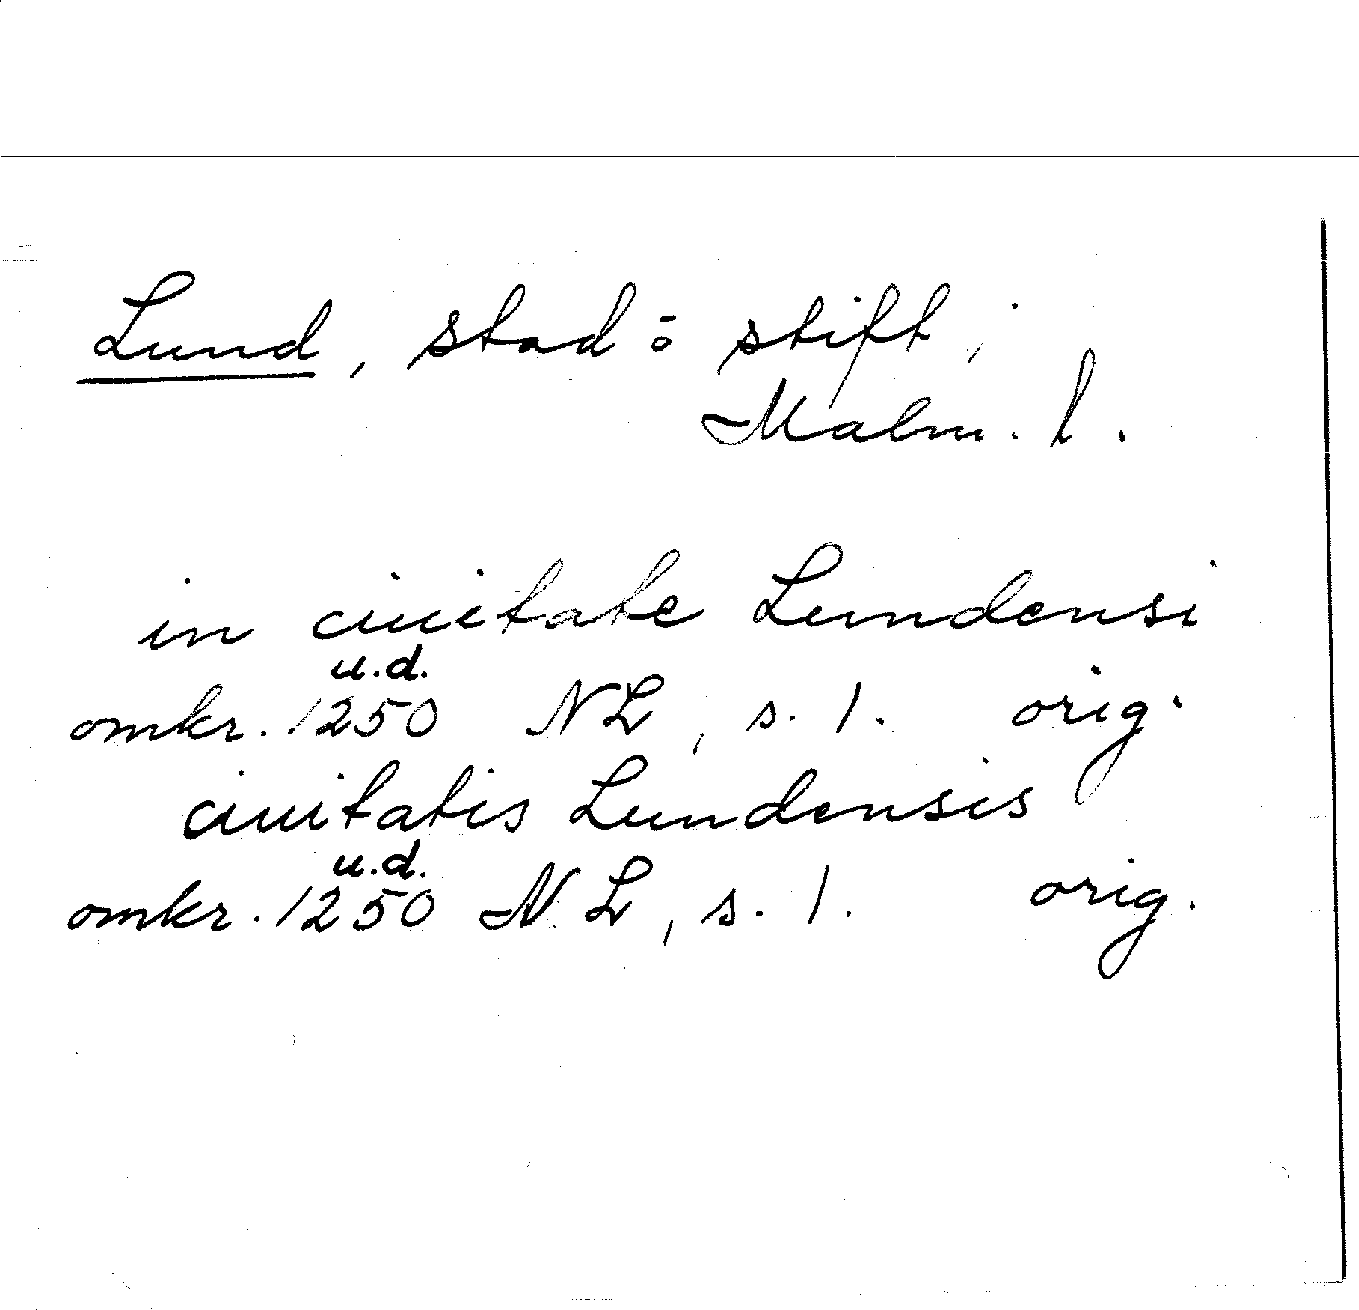 Lund, stad o stift,
Malm. l.
in ciuitate Lundensi
u.d.
omkr. 1250 NL, s. 1. orig.
ciuitatis Lundensis
u.d.
omkr. 1250 NL, s. 1. orig.